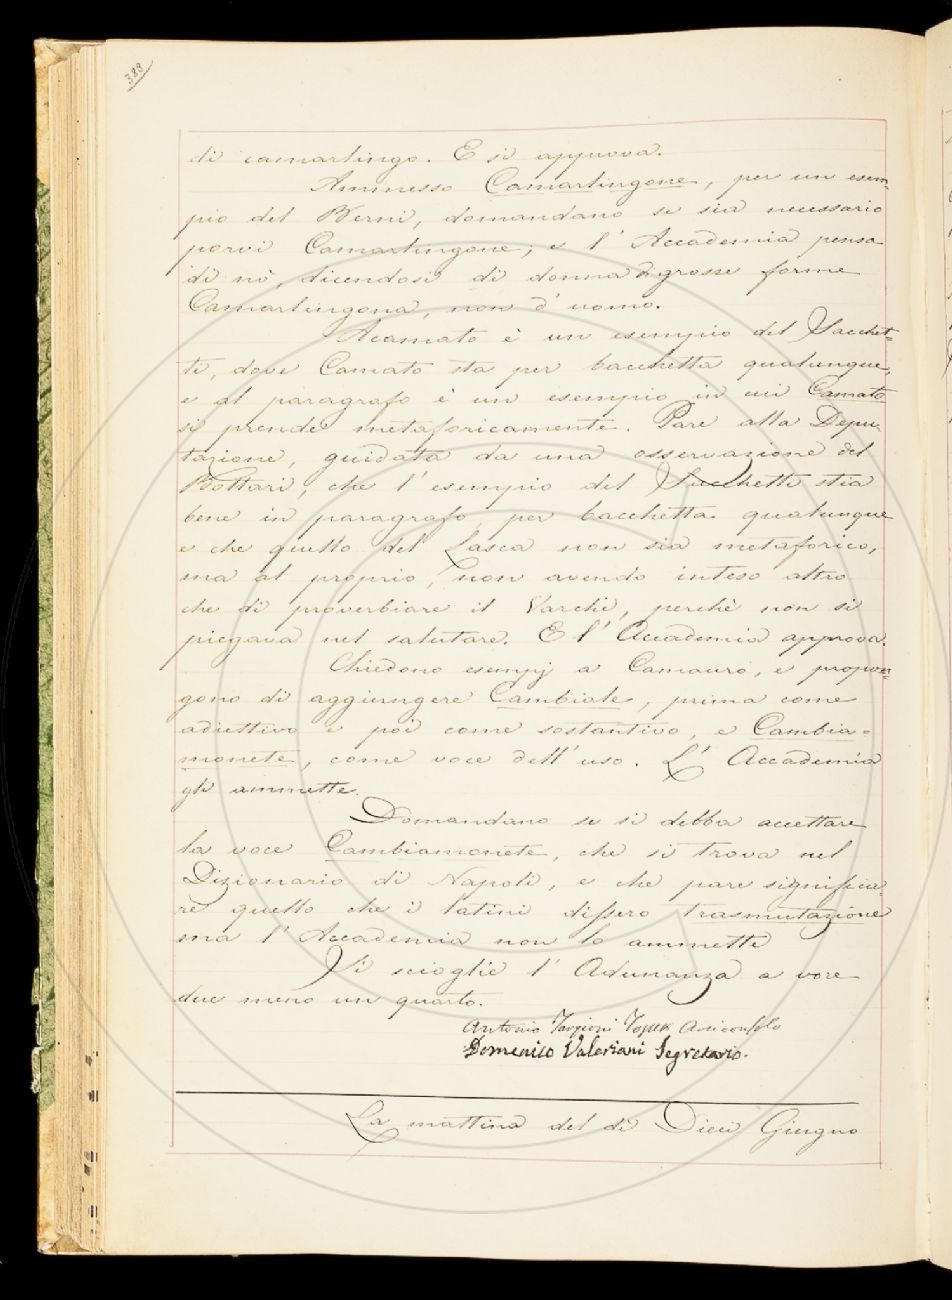 388
di camarlingo. E si approva.
Ammesso Camarlingone, per un esem-
pio del Berni, domandano se sia necessario
porvi Camarlingone; e l' Accademia pensa
di nò, dicendosi di donna di grosse forme
Camarlingona, non d' uomo.
A camato è un esempio del Sacchet-
ti, dove Camato sta per bacchetta qualunque,
e al paragrafo è un esempio in cui Camato
si prende metaforicamente. Pare alla Depu-
tazione, guidata da una osservazione del
Bottari, che l' esempio del Sacchetti stia
bene in paragrafo, per bacchetta qualunque
e che quello del Lasca non sia metaforico,
ma al proprio, non avendo inteso altro
che di proverbiare il Varchi, perchè non si
piegava nel salutare. E l' Accademia approva.
Chiedono esempj a Camauro, e propon-
gono di aggiungere Cambiale, prima come
adiettivo e poi come sostantivo, e Cambia-
monete, come voce dell' uso. L' Accademia
gli ammette.
Domandano se si debba accettare
la voce Cambiamonete, che si trova nel
Dizionario di Napoli, e che pare significa
re quello che i latini dissero trasmutazione
ma l' Accademia non lo ammette
Si scioglie l' Adunanza a ore
due meno un quarto.
Antonio Targioni Tozzetti Arciconsolo
Domenico Valeriani Segretario.
La mattina del di Dieci Giugno